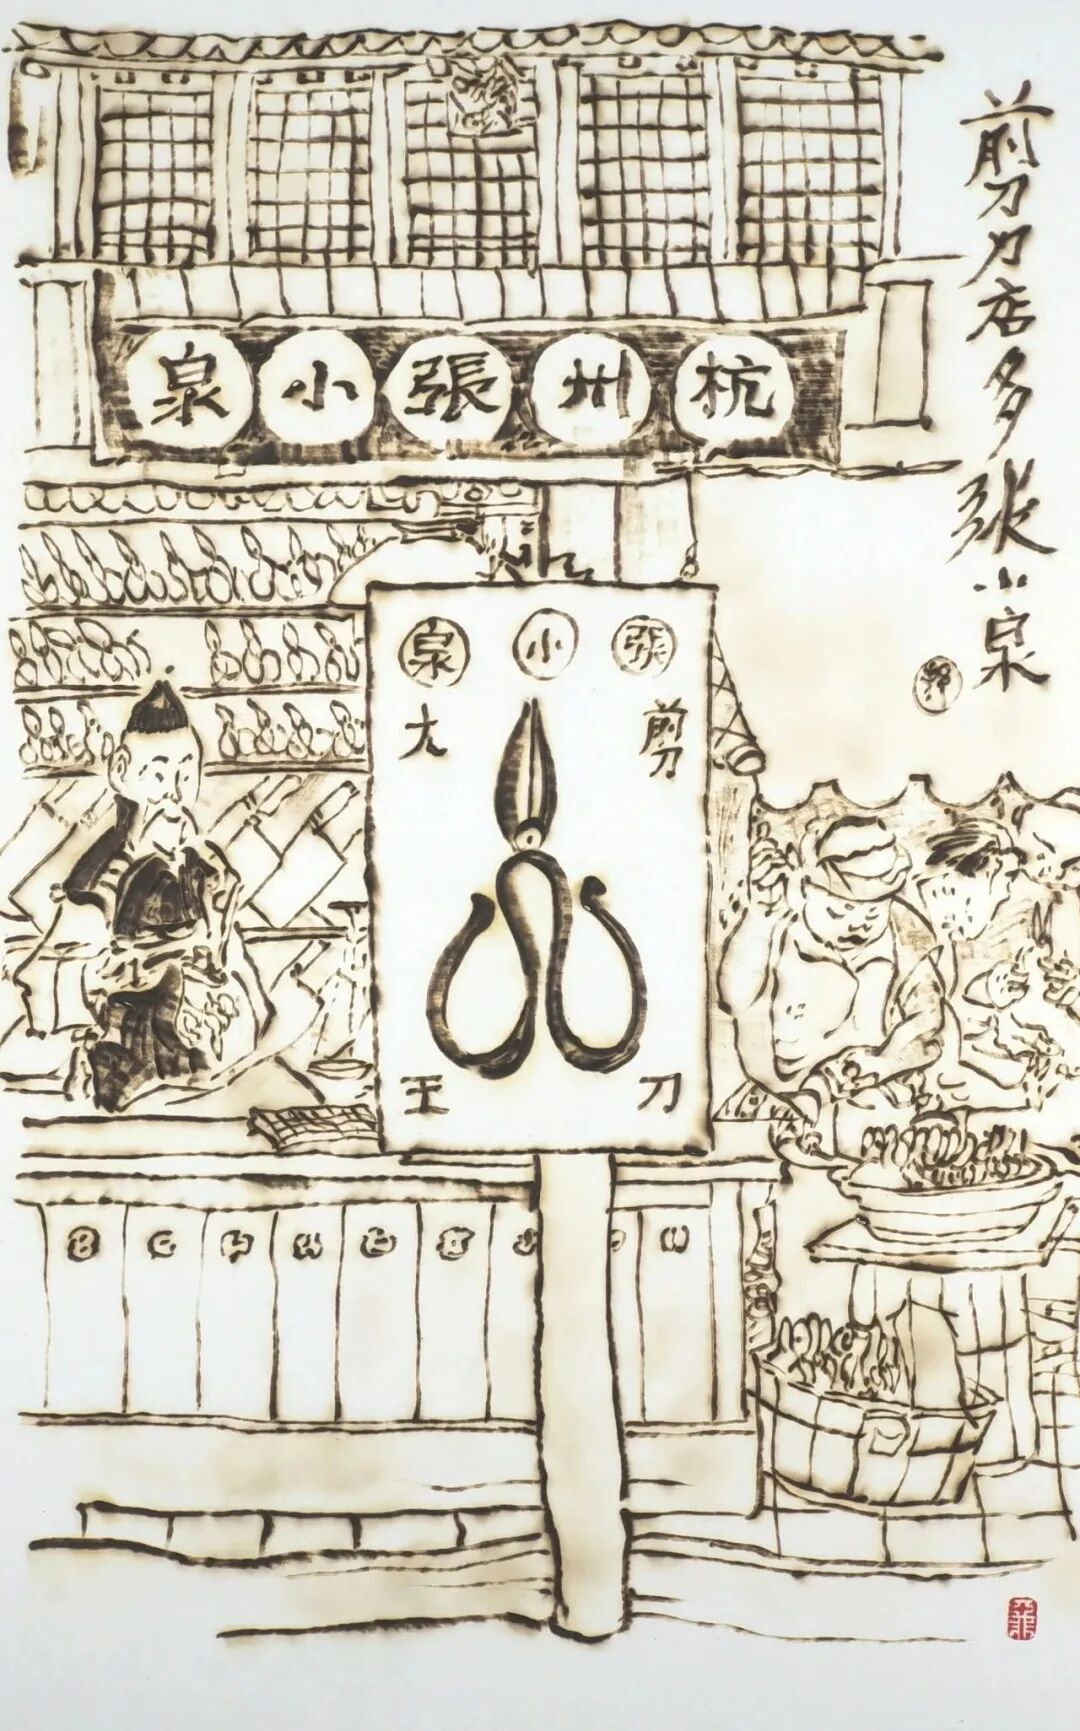 剪刀店多张小泉
杭州張小泉
張小泉
剪刀
大王